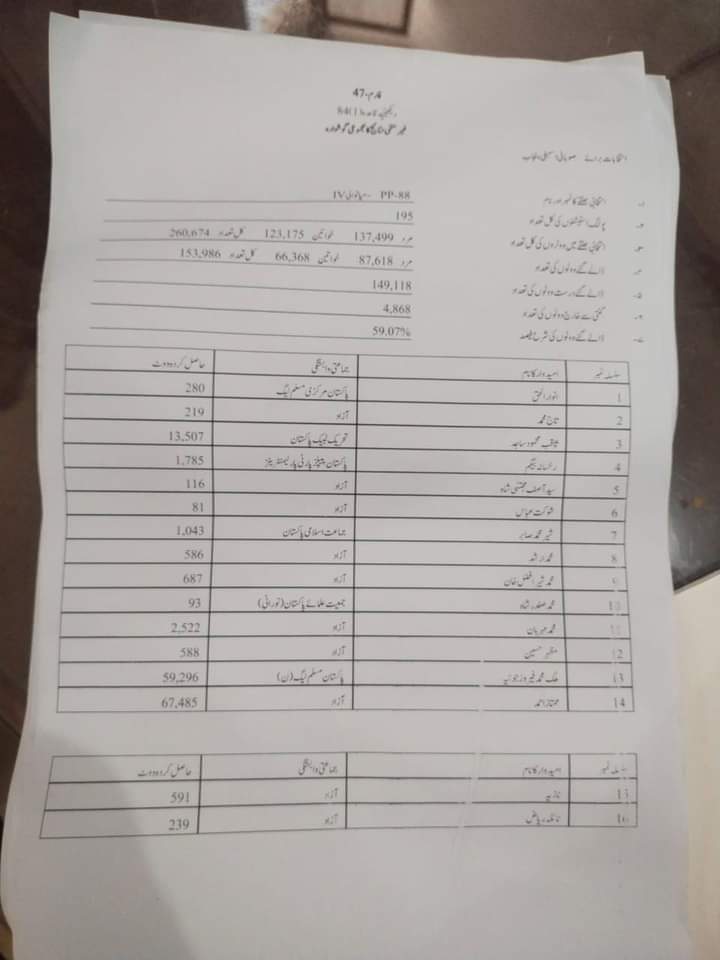 فارم-47
دیکھیے قاعدہ 84(1)
غیر حتمی نتائج کا مجموعی گوشوارہ
انتخابات برائے صوبائی اسمبلی پنجاب
۱۔ انتخابی حلقے کا نمبر اور نام PP-88 -میانوالی IV
۲۔ پولنگ اسٹیشنوں کی کل تعداد 195
۳۔ انتخابی حلقے میں ووٹروں کی کل تعداد مرد 137,499 خواتین 123,175 کل تعداد 260,674
۴۔ ڈالے گئے ووٹوں کی تعداد مرد 87,618 خواتین 66,368 کل تعداد 153,986
۵۔ ڈالے گئے درست ووٹوں کی تعداد 149,118
۶۔ گنتی سے خارج ووٹوں کی تعداد 4,868
۷۔ ڈالے گئے ووٹوں کی شرح فیصد 59.07%
سلسلہ نمبر امیدوار کا نام جماعتی وابستگی حاصل کردہ ووٹ
1 انوار الحق پاکستان مرکزی مسلم لیگ 280
2 تاج محمد آزاد 219
3 ثاقب محمود ساجد تحریک لبیک پاکستان 13,507
4 رخسانہ بیگم پاکستان پیپلز پارٹی پارلیمنٹیرینز 1,785
5 سید آصف مجتبیٰ شاہ آزاد 116
6 شوکت عباس آزاد 81
7 شیر محمد صابر جماعت اسلامی پاکستان 1,043
8 محمد ارشد آزاد 586
9 محمد شیر افضل خان آزاد 687
10 محمد صفدر شاہ جمعیت علمائے پاکستان (نورانی) 93
11 محمد مہربان آزاد 2,522
12 مظہر حسین آزاد 588
13 ملک محمد فیروز جوئیہ پاکستان مسلم لیگ (ن) 59,296
14 ممتاز احمد آزاد 67,485
سلسلہ نمبر امیدوار کا نام جماعتی وابستگی حاصل کردہ ووٹ
15 نازیہ آزاد 591
16 نائلہ ریاض آزاد 239